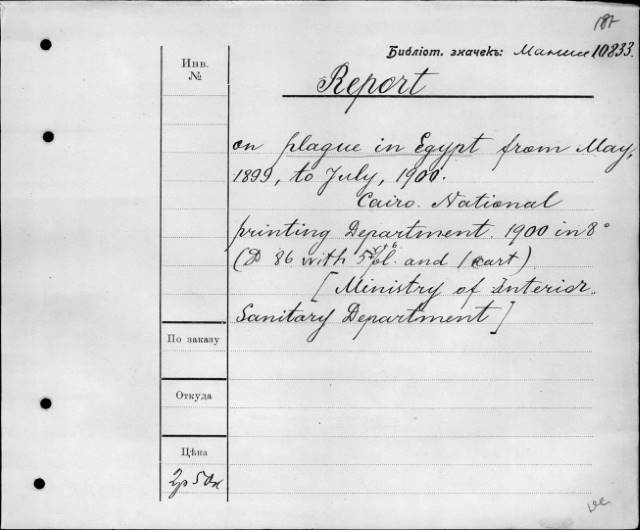 187
Библіот. значекъ: 10833
Инв.
№
Report
on plague in Egypt from May,
1899, to July, 1900.
Cairo. National
printing Department. 1900 in 8°
86 with and 1 cart).
[Ministry of Interior.
Sanitary Department]
По заказу
Откуда
Цѣна
2р 50к